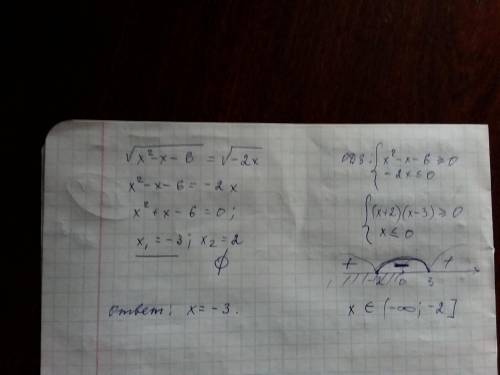 √(x²-x-6) = √(-2x)
x²-x-6 = -2x
x²+x-6 = 0;
x₁ = -3; x₂ = 2
∅
Ответ: x = -3.
ОДЗ: { x²-x-6 ≥ 0
-2x ≥ 0
{ (x+2)(x-3) ≥ 0
x ≤ 0
+ - +
-2 0 3
x ∈ (-∞; -2]